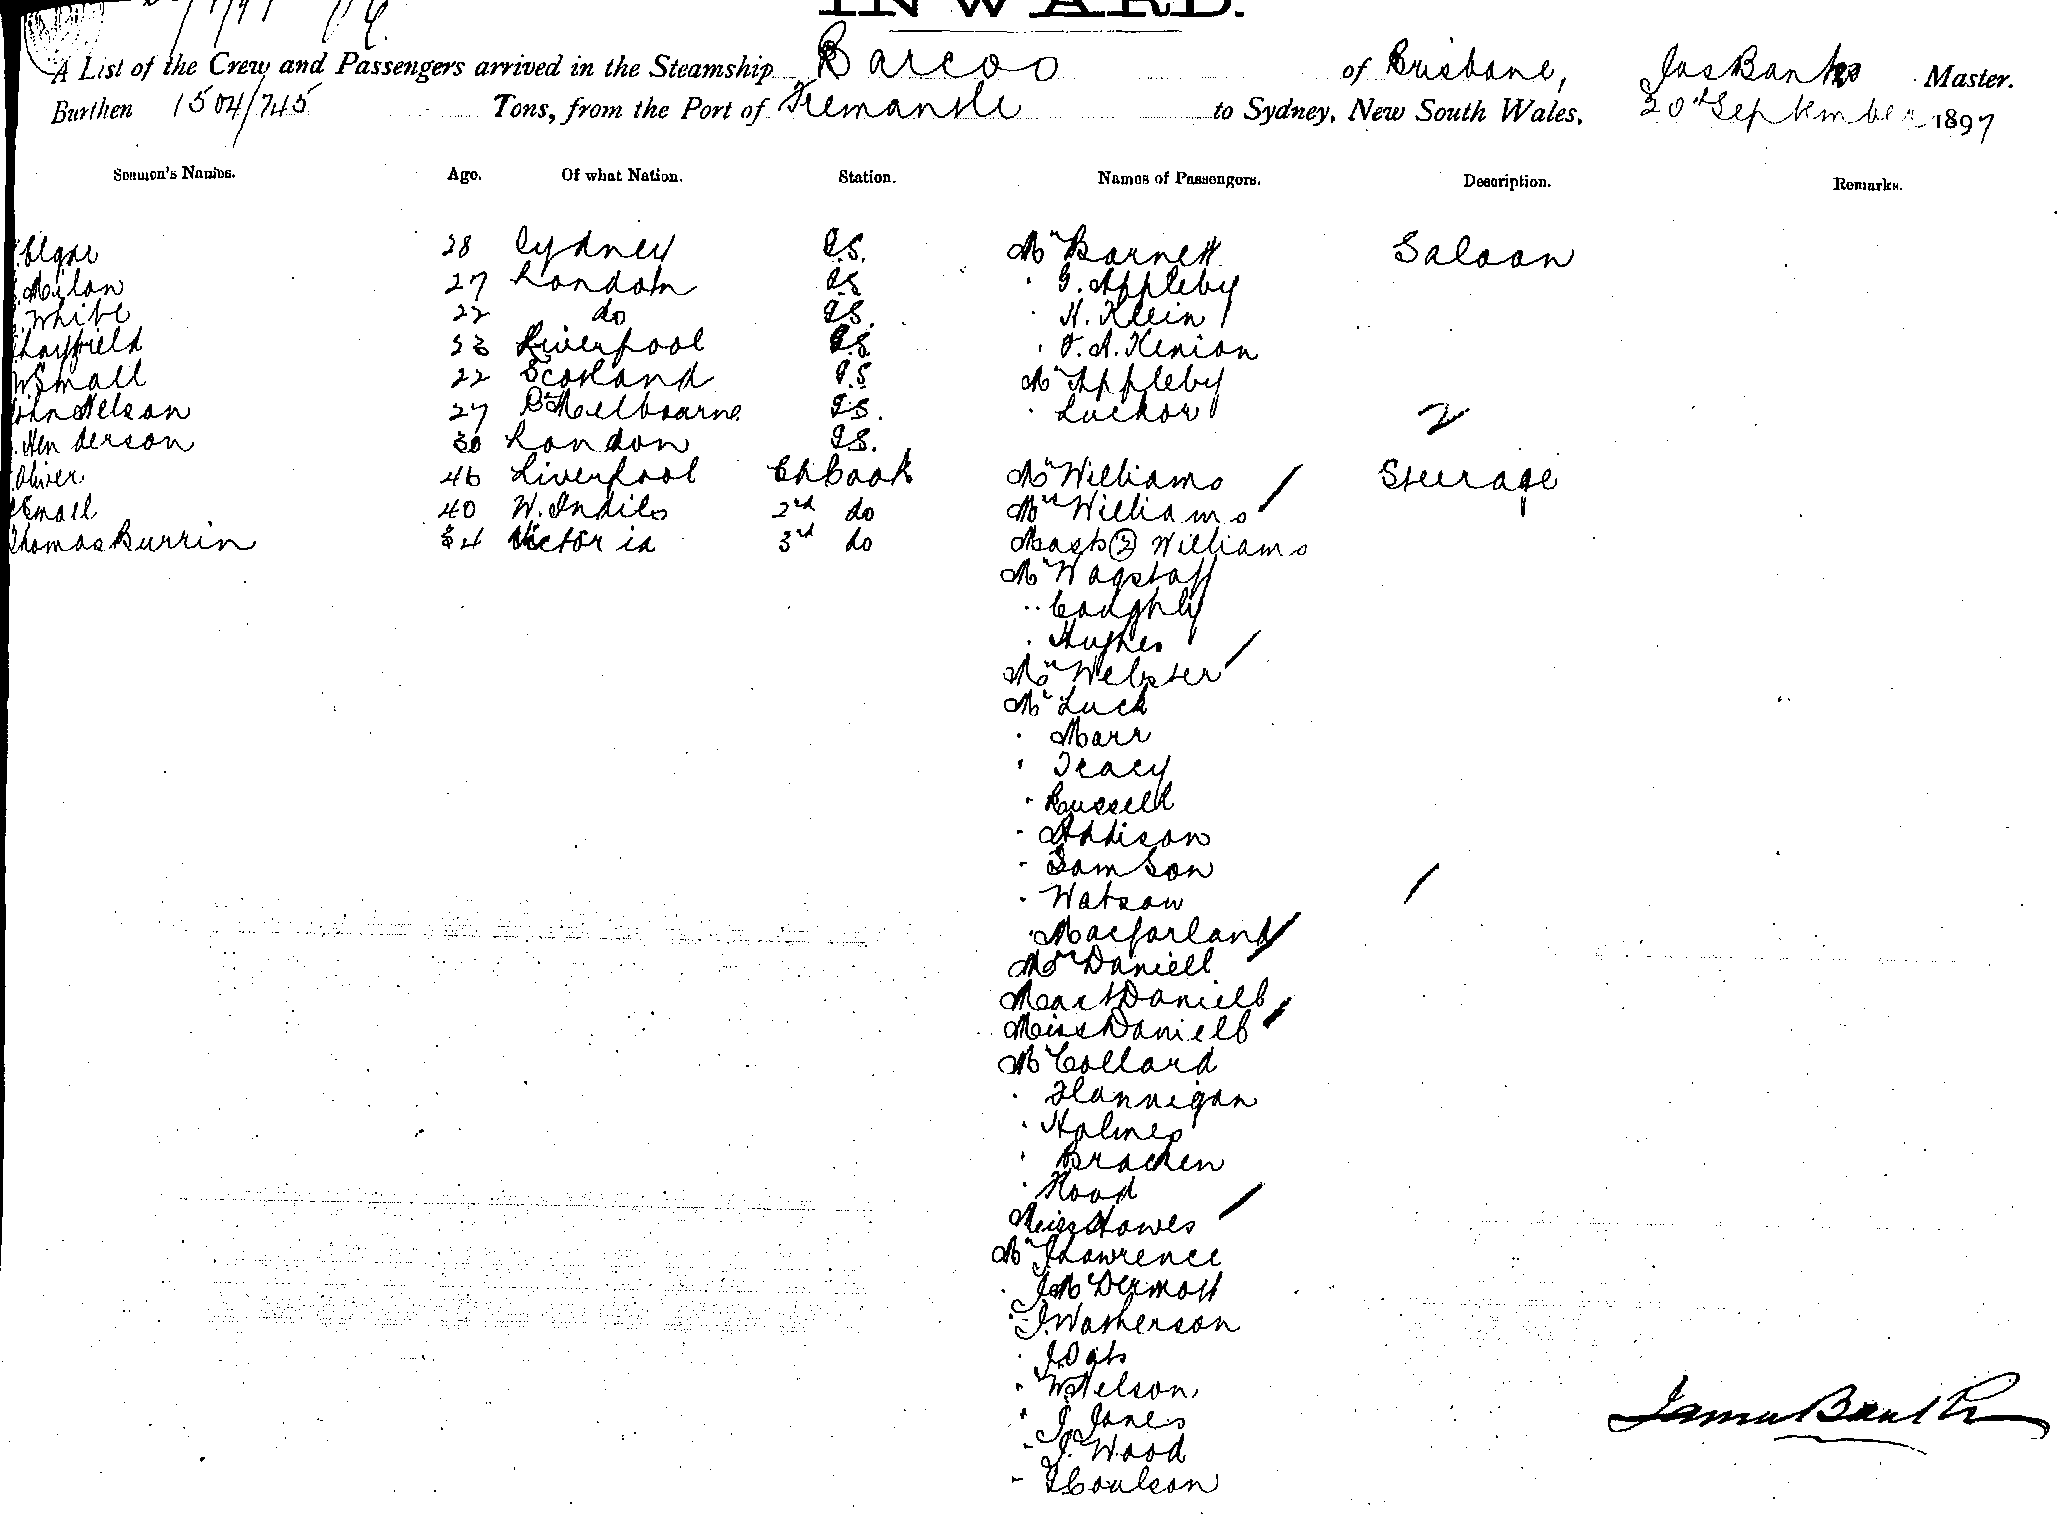 INWARD.
A List of the Crew and Passengers arrived in the Steamship Barcoo of Brisbane, Jas Banks Master.
Burthen 1504/745 Tons, from the Port of Fremantle to Sydney, New South Wales, 20th September 1897
Seamen's Names. Age. Of what Nation. Station. Names of Passengers. Description. Remarks.
28 Sydney Mr Barnett Saloon
27 London " G. Appleby
White 22 do " H. Klein
Liverpool " Kenion
W. Small 22 Scotland Mr Appleby
John Nelson 27 Melbourne " 2
Henderson 30 London
Oliver 46 Liverpool Ch Cook Mr Williams Steerage
Small 40 W. Indies 2nd do Mrs Williams
Thomas Burrin 34 Victoria 3rd do Mast (2) Williams
Mr Wagstaff
" Coughly
" Hughes
Mrs Webster
Mr Luck
" Marr
" Tracy
" Russell
" Addison
" Samson
" Watson
" Macfarland
Mrs Daniell
Mast Daniell
Miss Daniell
Mr Collard
" Flannigan
" Holmes
" Bracken
" Hood
Miss Howes
Mr J Lawrence
" J McDermott
" J. Watherson
" J Oats
" W Nelson
" J. Jones
" J. Wood
" J Coulson
James Banks